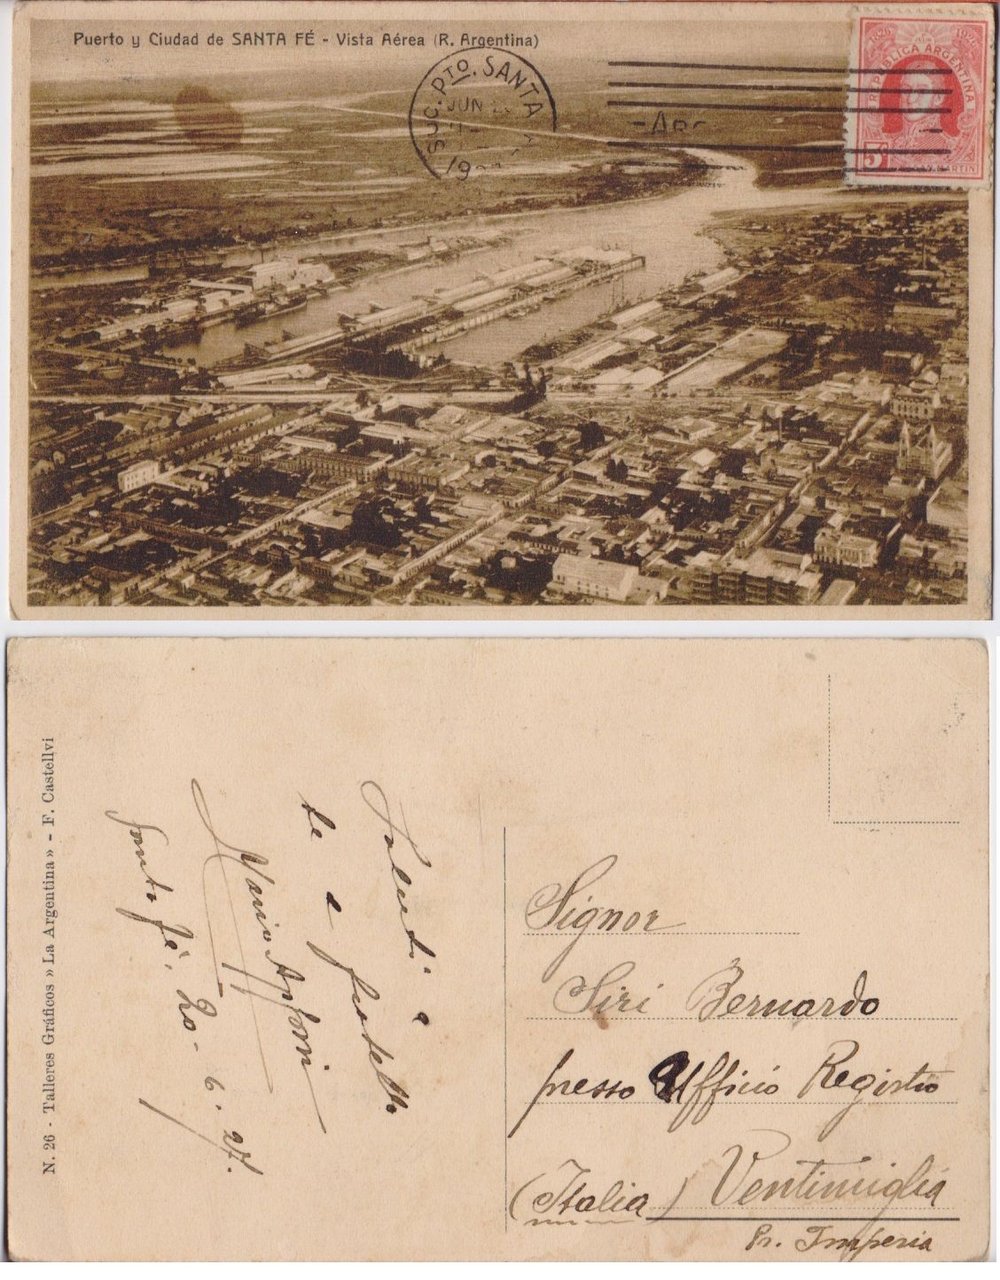 Puerto y Ciudad de SANTA FÉ - Vista Aérea (R. Argentina)
SUC. PTO. SANTA
JUN
1926 1926
REPÚBLICA ARGENTINA
5c
N. 26 - Talleres Gráficos » La Argentina » - F. Castellvi
Saluti a
te e fratello
Mario
Santa Fè, 20-6.27.
Signor
Siri Bernardo
presso Ufficio Registro
(Italia) Ventimiglia
Pr. Imperia